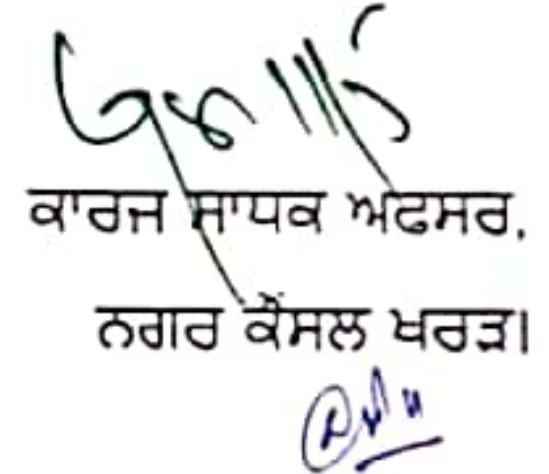 ਕਾਰਜ ਸਾਧਕ ਅਫਸਰ.
ਨਗਰ ਕੌਂਸਲ ਖਰੜ।